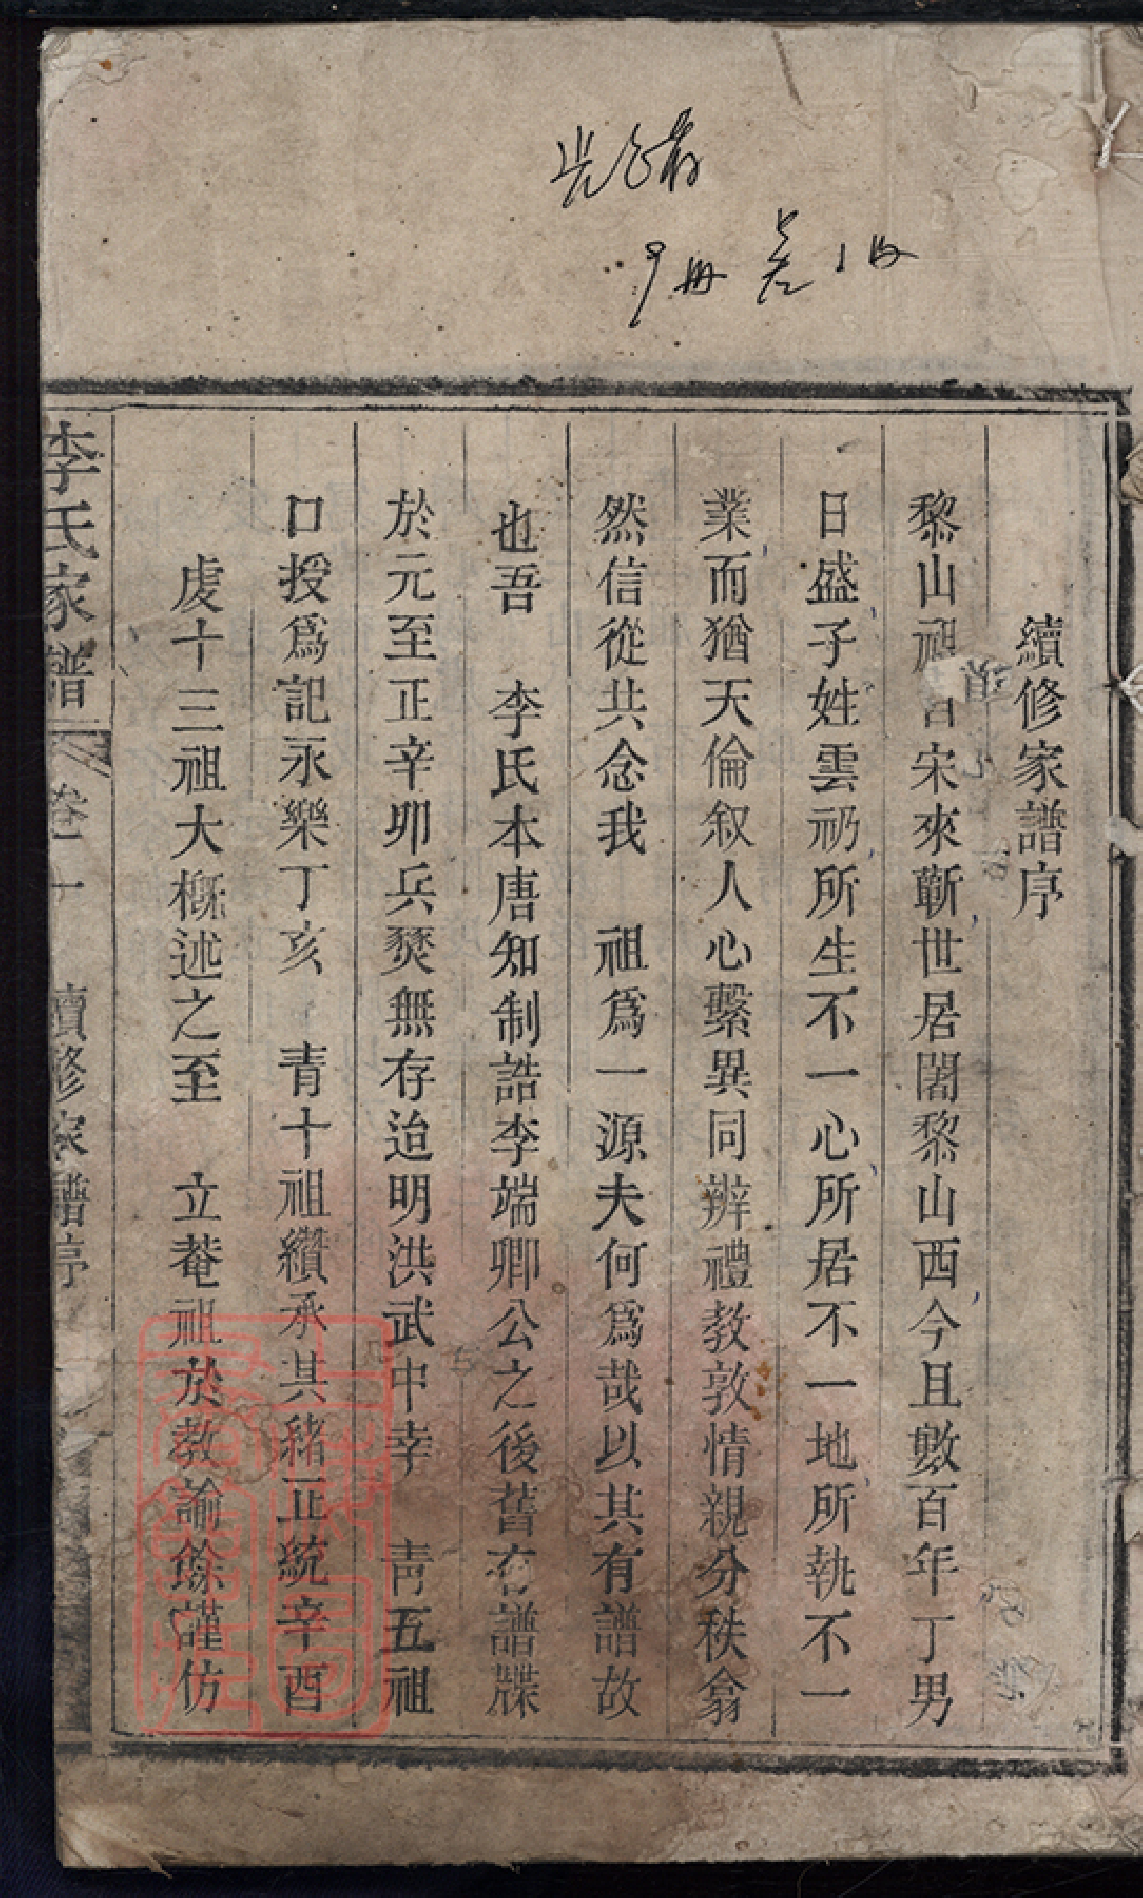 續修家譜序
黎山祖自宋來蘄世居闍黎山西今且數百年丁男
日盛子姓雲礽所生不一心所居不一地所執不一
業而猶天倫叙人心繫異同辨禮教敦情親分秩翕
然信從共念我　祖爲一源夫何爲哉以其有譜故
也吾　李氏本唐知制誥李端卿公之後舊有譜牒
於元至正辛卯兵燹無存迨明洪武中幸　靑五祖
口授爲記永樂丁亥　青十祖纘承其緒正統辛酉
虔十三祖大槪述之至　立菴祖於教諭餘謹仿
李氏家譜　卷一　續修家譜序